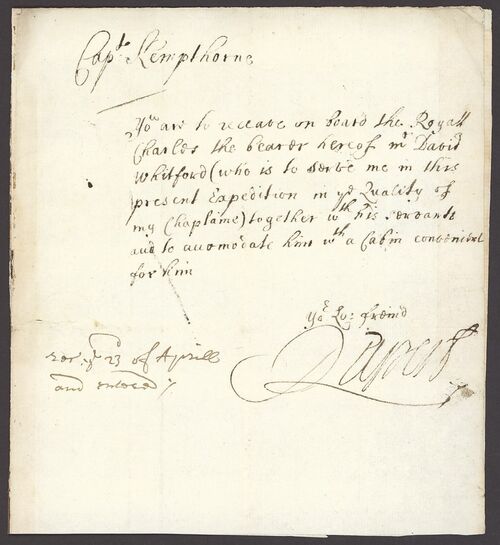 Capt Kempthorne
You are to receave on board the Royall
Charles the bearer hereof mr David
Whitford (who is to serve me in this
present Expedition in ye Quality of
my Chaplaine) together wth his servants
and to accomodate him wth a Cabin convenient
for him
Yor Lo: freind
Rupert
rec ye 23 of Aprill
and entered